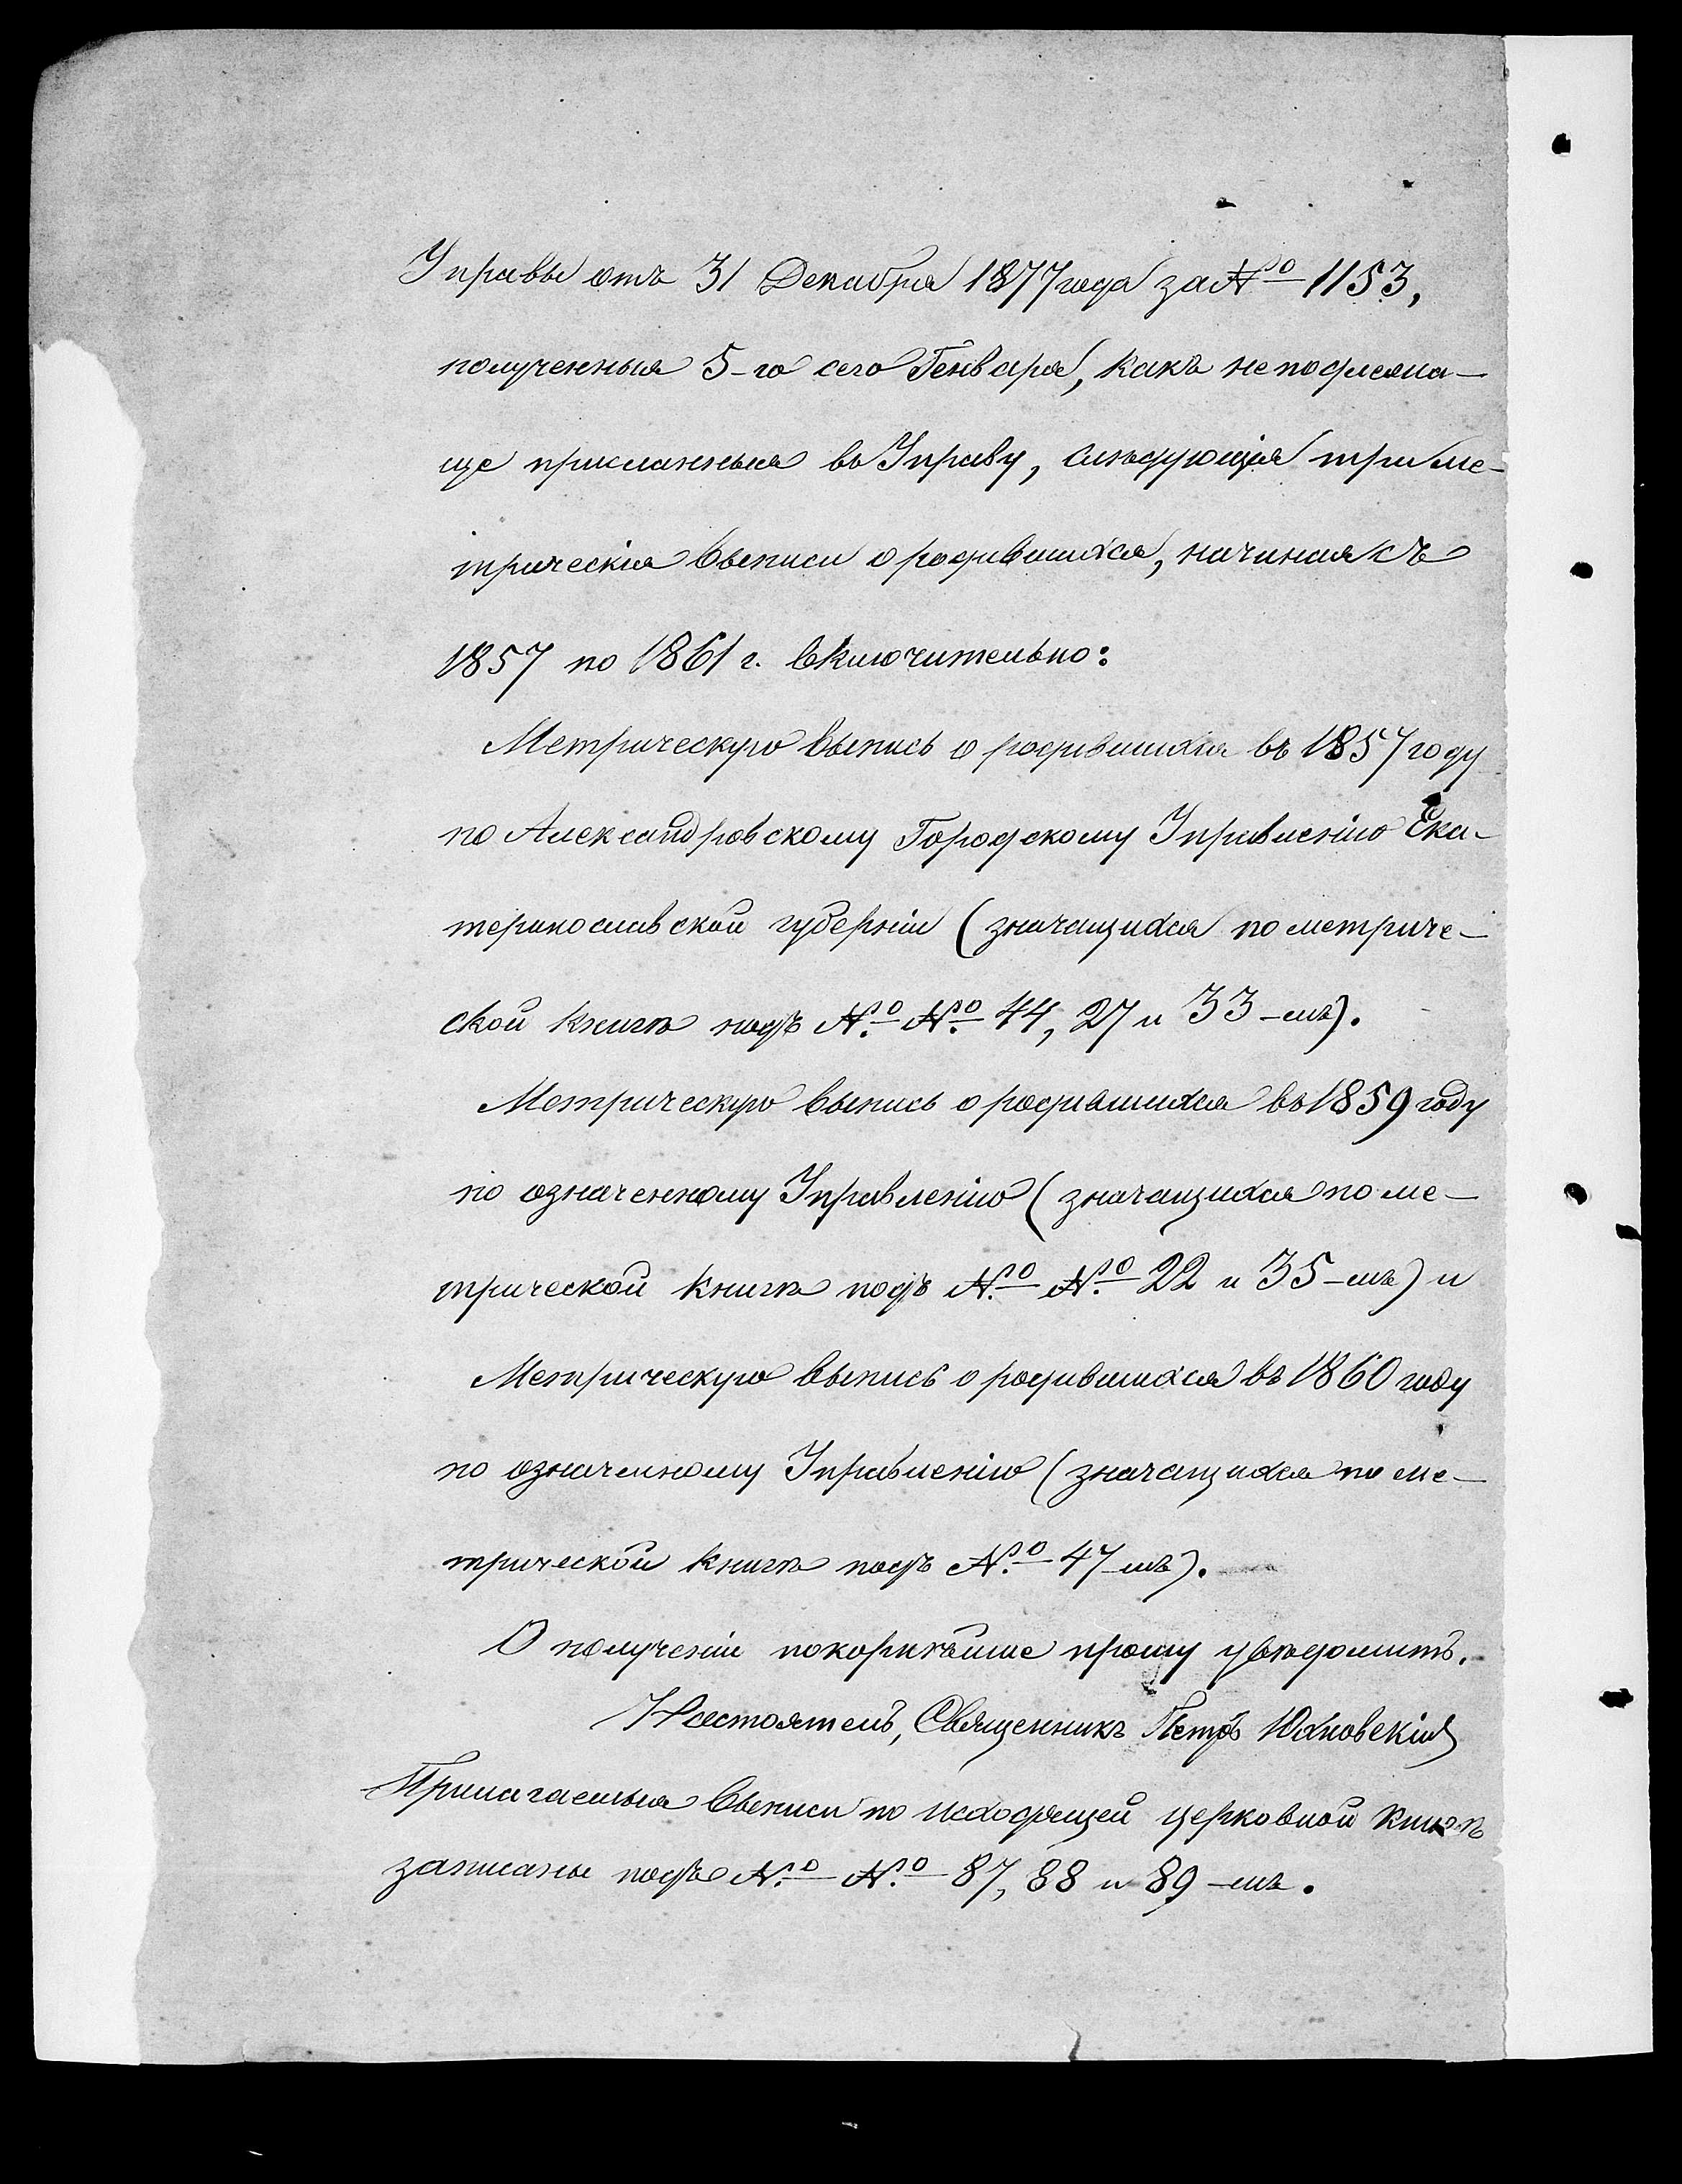 Управы отъ 31 Декабря 1877 года за № 1153,
полученныя 5-го сего Генваря, какъ неподлежа-
ще присланныя въ Управу, слѣдующія три ме-
трическія выписи о родившихся, начиная съ
1857 по 1861 г. включительно:
Метрическую выпись о родившихся въ 1857 году
по Александровскому Городскому Управленію Ека-
теринославской губерніи (значащихся по метриче-
ской книгѣ подъ № № 44, 27 и 33-мъ).
Метрическую выпись о родившихся въ 1859 году
по означенному Управленію (значащихся по ме-
трической книгѣ подъ № № 22 и 35-мъ) и
Метрическую выпись о родившихся въ 1860 году
по означенному Управленію (значащихся по ме-
трической книгѣ подъ № 47-мъ).
О полученіи покорнѣйше прошу увѣдомить.
Настоятель, Священникъ Петръ Юхновскій
Прилагаемыя выписи по исходящей церковной книгѣ
записаны подъ № № 87, 88 и 89-мъ.